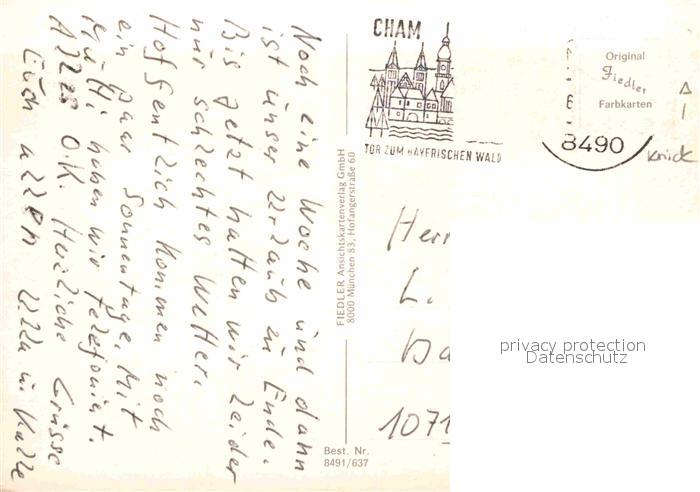 Noch eine Woche und dann
ist unser Urlaub zu Ende.
Bis jetzt hatten wir leider
nur schlechtes Wetter.
Hoffentlich kommen noch
ein paar Sonnentage. Mit
Mutti haben wir telefoniert.
Alles O.K. Herzliche Grüsse
Euch allen Ulla u. Kalle
FIEDLER Ansichtskartenverlag GmbH
8000 München 83, Hofangerstraße 60
Best. Nr.
8491/637
CHAM
TOR ZUM BAYERISCHEN WALD
6
8490
Original
Fiedler
Farbkarten
Knick
Herr
L.
1071
privacy protection
Datenschutz